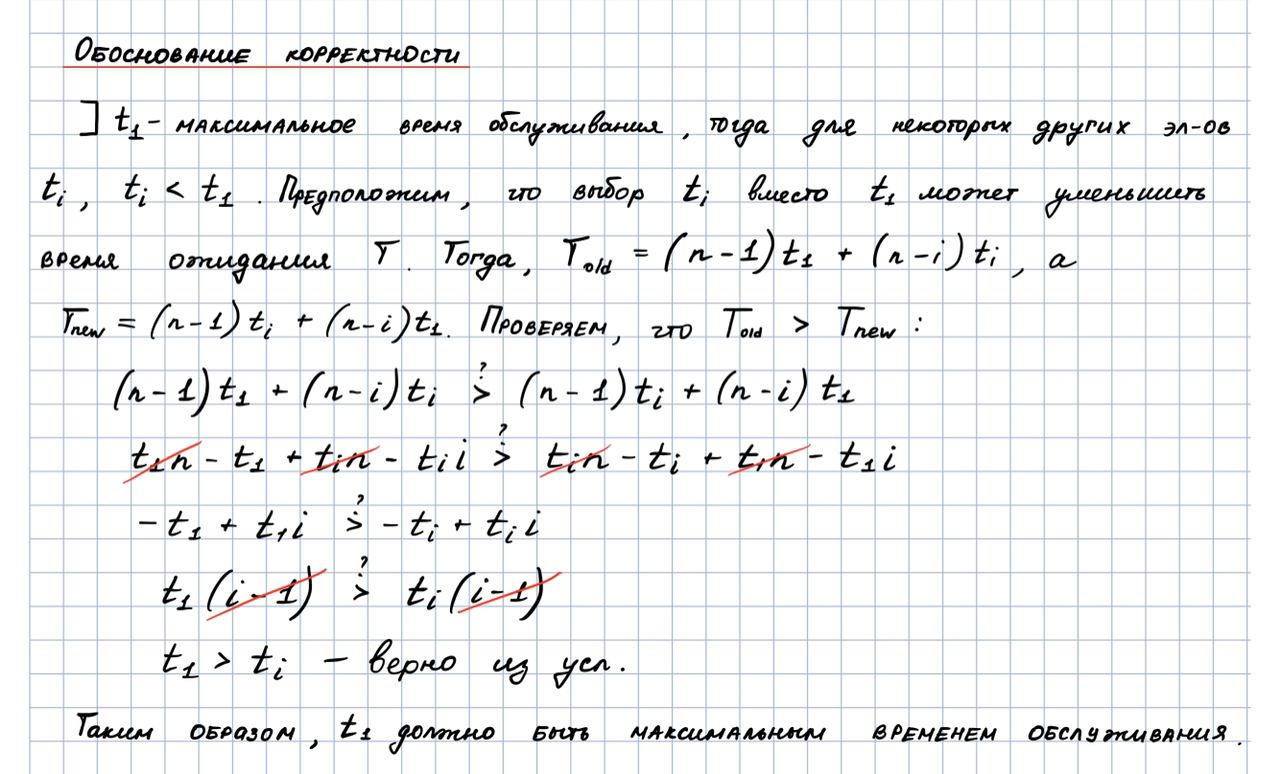 Обоснование корректности
] t₁ - максимальное время обслуживания, тогда для некоторых других эл-ов
tᵢ, tᵢ < t₁. Предположим, что выбор tᵢ вместо t₁ может уменьшить
время ожидания T. Тогда, T_old = (n-1)t₁ + (n-i)tᵢ, а
T_new = (n-1)tᵢ + (n-i)t₁. Проверяем, что T_old > T_new:
(n-1)t₁ + (n-i)tᵢ >? (n-1)tᵢ + (n-i)t₁
t₁n - t₁ + tᵢn - tᵢi >? tᵢn - tᵢ + t₁n - t₁i
-t₁ + t₁i >? -tᵢ + tᵢi
t₁(i-1) >? tᵢ(i-1)
t₁ > tᵢ - верно из усл.
Таким образом, t₁ должно быть максимальным временем обслуживания.